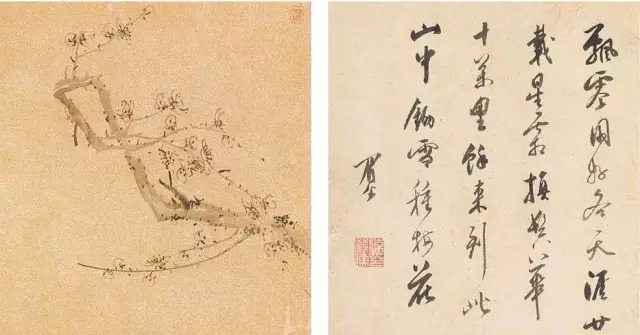 飄零好各天涯廿
載星霜換鬢華
十萬里餘來到此
山中鋤雪種梅花